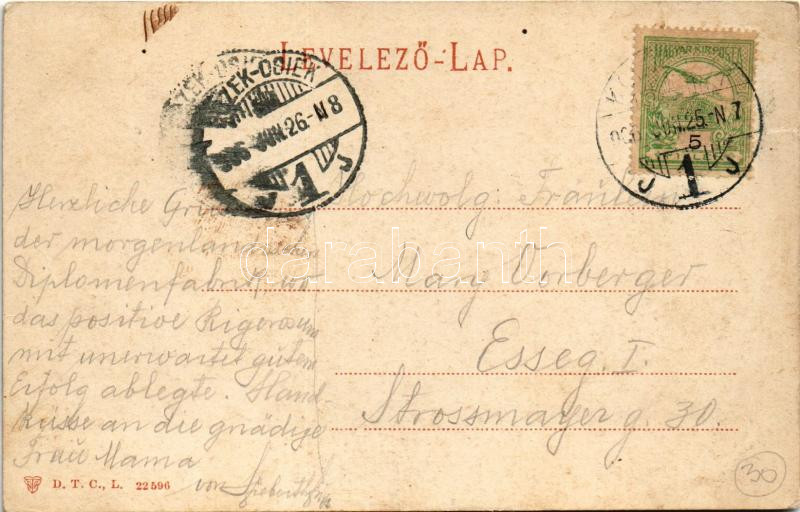 LEVELEZŐ-LAP.
MAGYAR KIR. POSTA
5
ESZÉK-OSIEK
906 JUN. 26.-N 8
1 J
906 JUN. 25.-N 7
J 1 J
Herzliche
der morgenländischen
Diplomenfabrik wo
das positive Rigorosum
mit unerwartet gutem
Erfolg ablegte. Hand-
küsse an die gnädige
Frau Mama
von
Hochwolg. Fräulein
Mary Vorberger
Esseg I.
Strossmayer g. 30.
darabanth
D. T. C., L. 22596
30